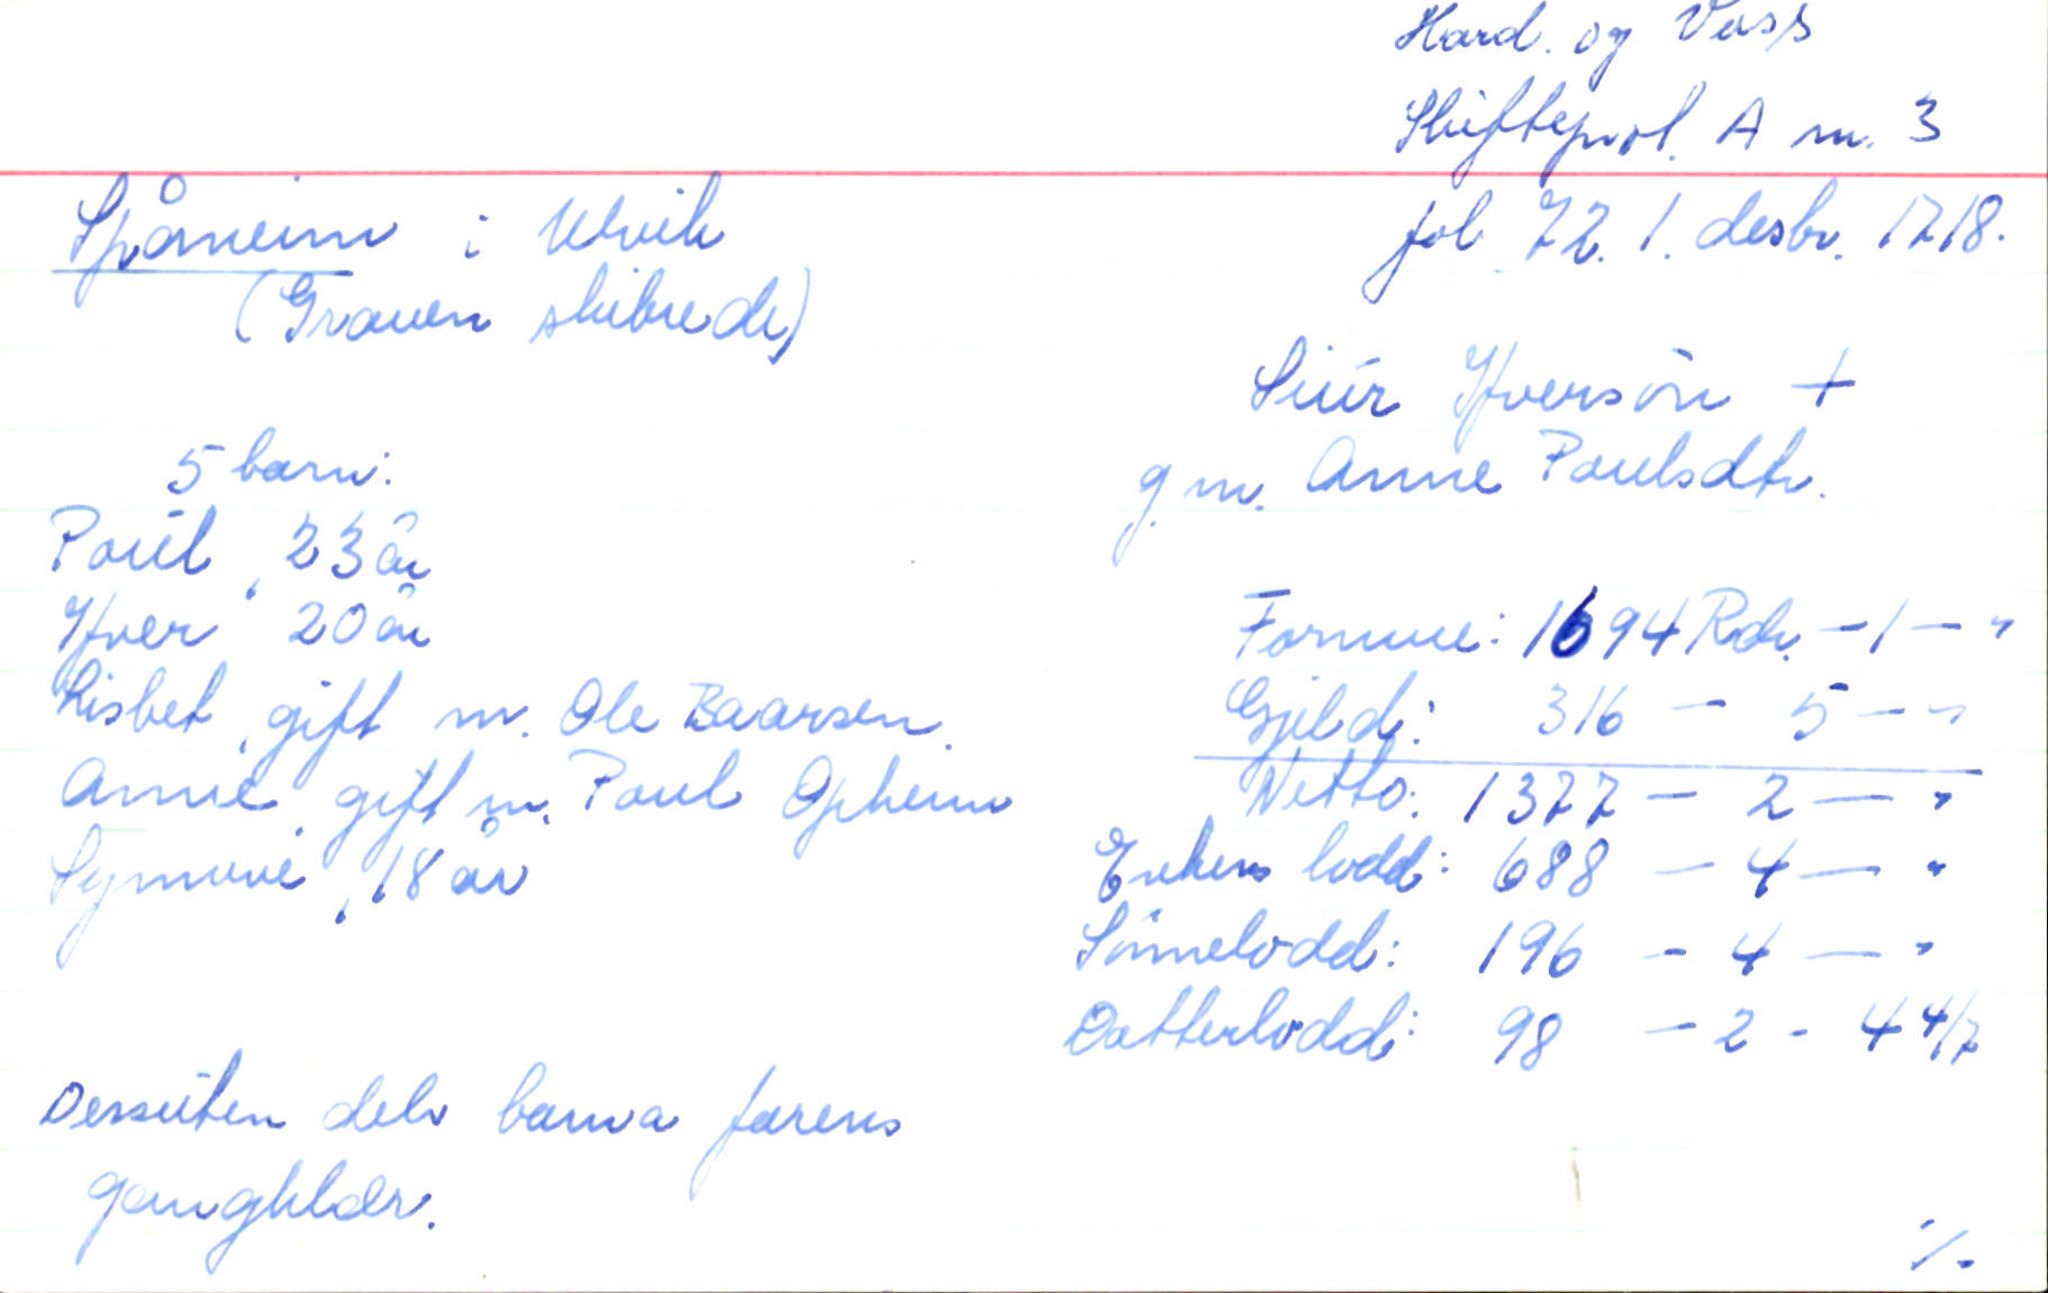 Hard. og Voss
Skifteprot. A nr. 3
fol 72. 1. desbr. 1718.
Spåneim i Ulvik
(Graven skibrede)
Siúr Yfversön +
g.m. Anne Poulsdtr.
5 barn:
Poúl, 23 år
Yfver 20 år
Lisbet, gift m. Ole Baarsen.
Anne, gift m. Poul Opheim
Synnove, 18 år
Dessúten delv barna farens
gangklær.
Formue: 1694 Rdr. – 1 – "
Gjeld: 316 – 5 – "
Netto: 1377 – 2 – "
Enkens lodd: 688 – 4 – "
Sönnelodd: 196 – 4 – "
Datterlodd: 98 – 2 - 4 4/7
·/.